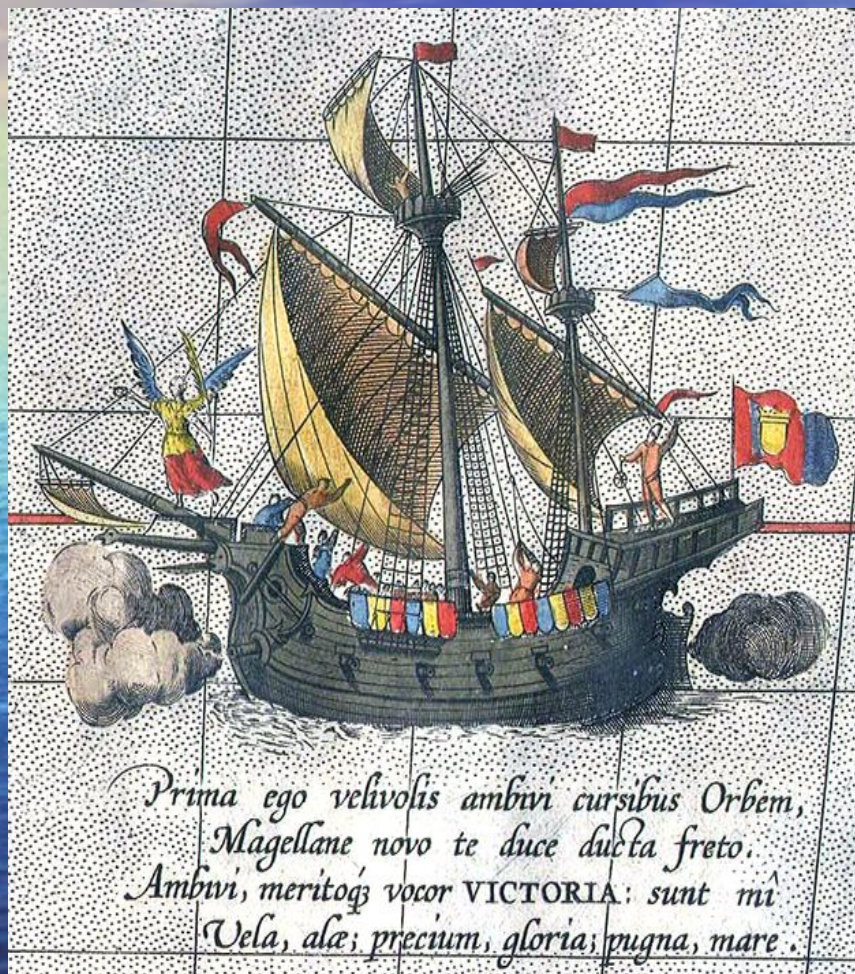 Prima ego velivolis ambivi cursibus Orbem,
Magellane novo te duce ducta freto.
Ambivi, meritoqꝫ vocor VICTORIA: sunt mî
Vela, alæ; precium, gloria; pugna, mare.